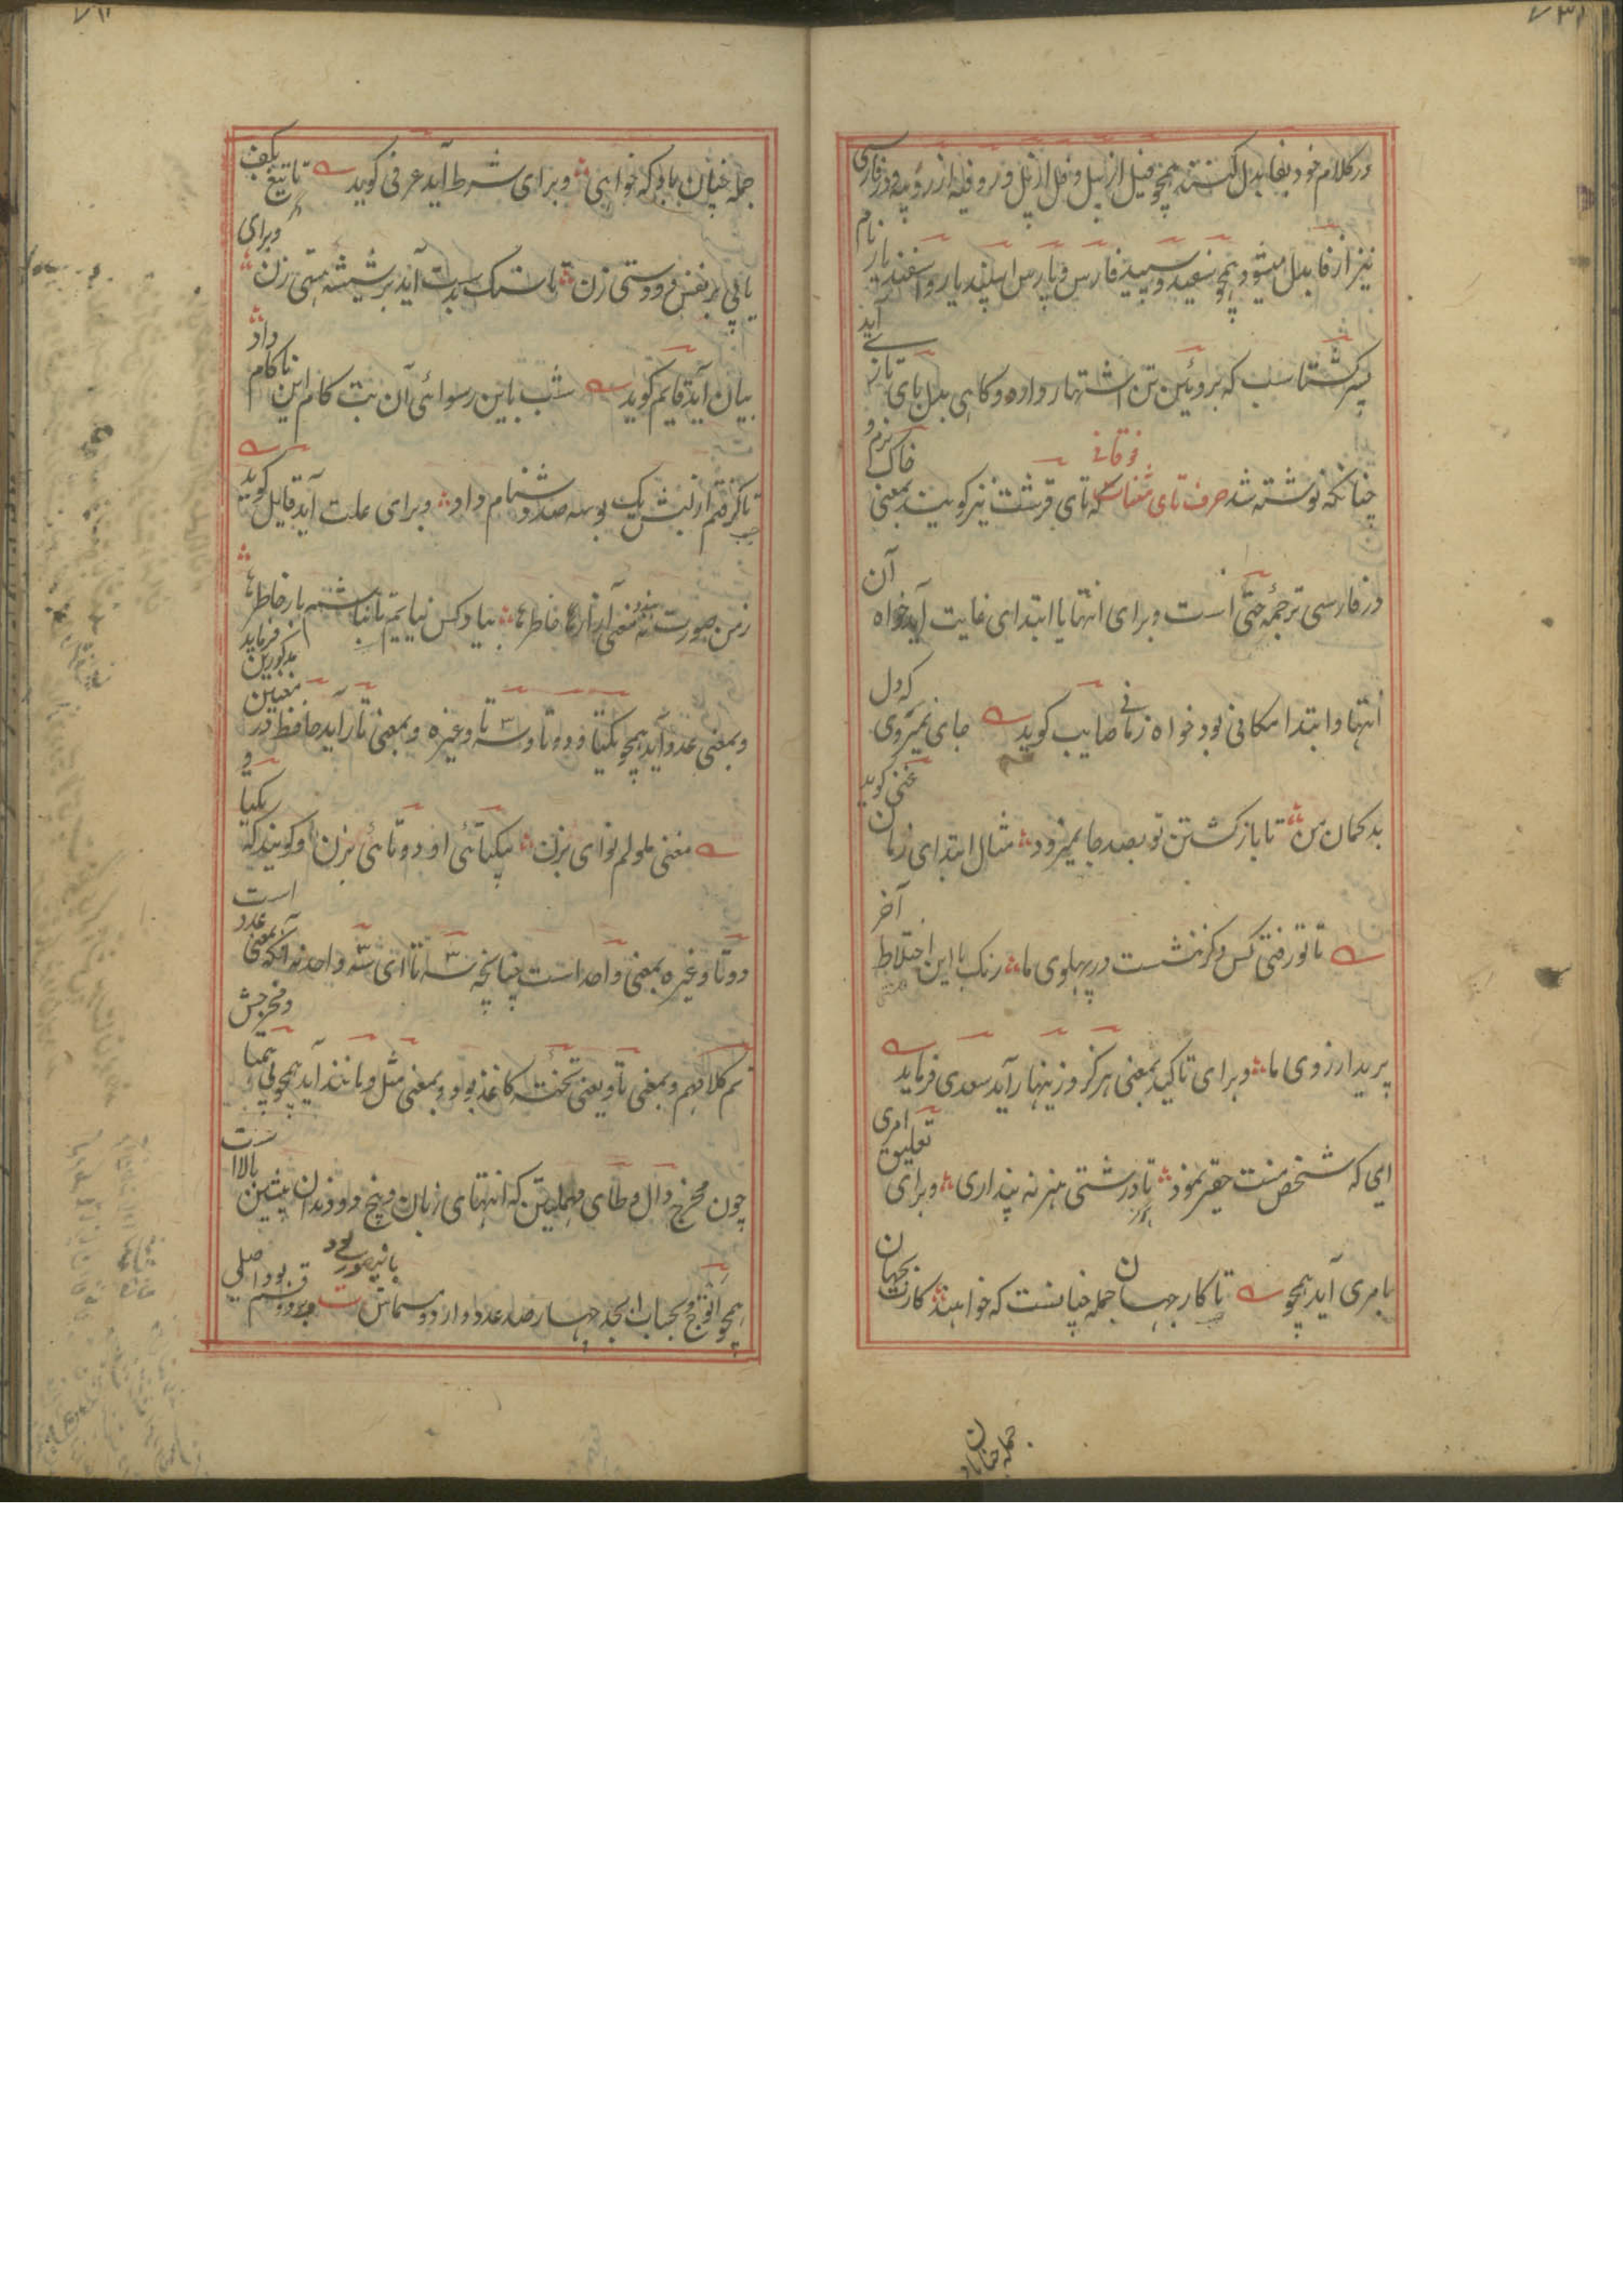 در کلام خود بفا بدل کنند همچو فیل از پیل و فلفل از پلپل و در فارسی
نیز از فا بدل میشود همچو سفید و سپید فارس و پارس اسپندیار و اسفندیار نام
پسر گشتاسب که بروئین تن اشتهار دارد و گاهی بدل بای تازی آید
چنانکه نوشته شد حرف تای مثناة فوقانی که تای قرشت نیز گویند بمعنی
در فارسی ترجمه حتی است و برای انتها یا ابتدای غایت آید خواه آن
انتها و ابتدا مکانی بود خواه زمانی صایب گوید جای نمیروی که دل
بدگمان من تا بازگشتن تو بصد جا نمیرود مثال ابتدای زمان غنی گوید
تا تو رفتی کس دگر ننشست در پهلوی ما رنگ با این اختلاط آخر
پرید از روی ما و برای تاکید بمعنی هرگز و زینهار آید سعدی فرماید
ای که شخص منت حقیر نمود تا درشتی هنر نه پنداری و برای تعلیق امری
بامری آید همچو تا کار جهان جمله چنانست که خواهند کار جهان
جمله چنان باد
جمله چنان باد که خواهی و برای شرط آید عرفی گوید تا تیغ بکف
یابی بر نفس دو دستی زن تا سنگ بدست آید بر شیشه هستی زن و برای
بیان آید قایم گوید شب باین رسوائی آن بت کام این ناکام داد
تا گرفتم از لبش یک بوسه صد دشنام داد و برای علت آید قایل گوید
ز من صورت نه بندد معنی آزار خاطرها بیا و کس نیایم تا نباشم بار خاطرها
و بمعنی عدد آید همچو یکتا و دو تا و سه تا و غیره و بمعنی تار آید حافظ در معنیین مذکورین فرماید
مغنی ملولم نوای بزن بیکتائی او دو تائی بزن و گویند که یکتا و
دو تا و غیره بمعنی واحد است چنانچه سه تا ای سه واحد نه آنکه بمعنی عدد است
هم کلا فهم و بمعنی تاو یعنی تخته کاغذ بود و بمعنی مثل و مانند آید همچو بی همتا و مخرجش
چون مخرج دال و طای مهملتین که انتهای زبان و بیخ دو دندان پیشین بالا است
همچو و بحساب ابجد چهار صد عدد دارد و مسماش ت و بر دو قسم بود اصلی